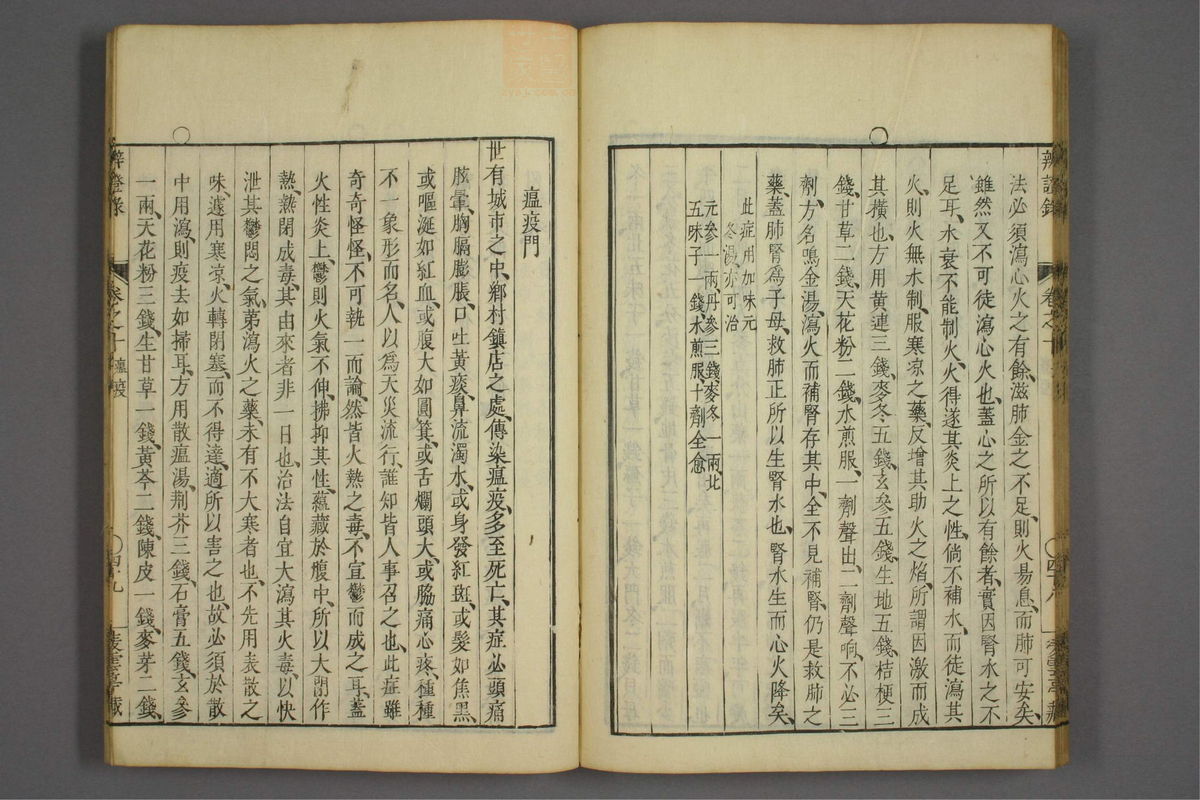 辨證錄 卷之十
法必須瀉心火之有餘滋肺金之不足、則火易息、而肺可安矣、
雖然又不可徒瀉心火也、蓋心之所以有餘者、實因腎水之不
足耳、水衰不能制火、火得遂其炎上之性、倘不補水、而徒瀉其
火、則火無水制、服寒凉之藥、反增其助火之焰、所謂因激而成
其橫也、方用黃連三錢、麥冬五錢、玄參五錢、生地五錢、桔梗三
錢、甘草二錢、天花粉二錢、水煎服、一劑聲出、二劑聲响、不必三
劑、方名鳴金湯、瀉火而補腎存其中、全不見補腎、仍是救肺之
藥、蓋肺腎爲子母、救肺正所以生腎水也、腎水生而心火降矣、
此症用加味元
冬湯、亦可治
元參一兩、丹參三錢、麥冬一兩、北
五味子一錢、水煎服、十劑全愈
瘟疫門
世有城市之中、鄉村鎮店之處、傳染瘟疫、多至死亡、其症必頭痛
眩暈、胸膈膨脹、口吐黃痰、鼻流濁水、或身發紅斑、或髮如焦黑、
或嘔涎如紅血、或腹大如圓箕、或舌爛頭大、或脇痛心疼、種種
不一、象形而名、人以爲天災流行、誰知皆人事召之也、此症雖
奇奇怪怪、不可執一而論、然皆火熱之毒、不宣鬱而成之耳、蓋
火性炎上、鬱則火氣不伸、拂抑其性、蘊藏於腹中、所以大閉作
熱、熱閉成毒、其由來者非一日也、治法自宜大瀉其火毒、以快
泄其鬱悶之氣、第瀉火之藥、未有不大寒者也、不先用表散之
味、遽用寒凉、火轉閉塞、而不得達、適所以害之也、故必須於散
中用瀉、則疫去如掃耳、方用散瘟湯、荆芥三錢、石膏五錢、玄參
一兩、天花粉三錢、生甘草一錢、黃芩二錢、陳皮一錢、麥芽二錢、
卷之十 瘟疫 四十九